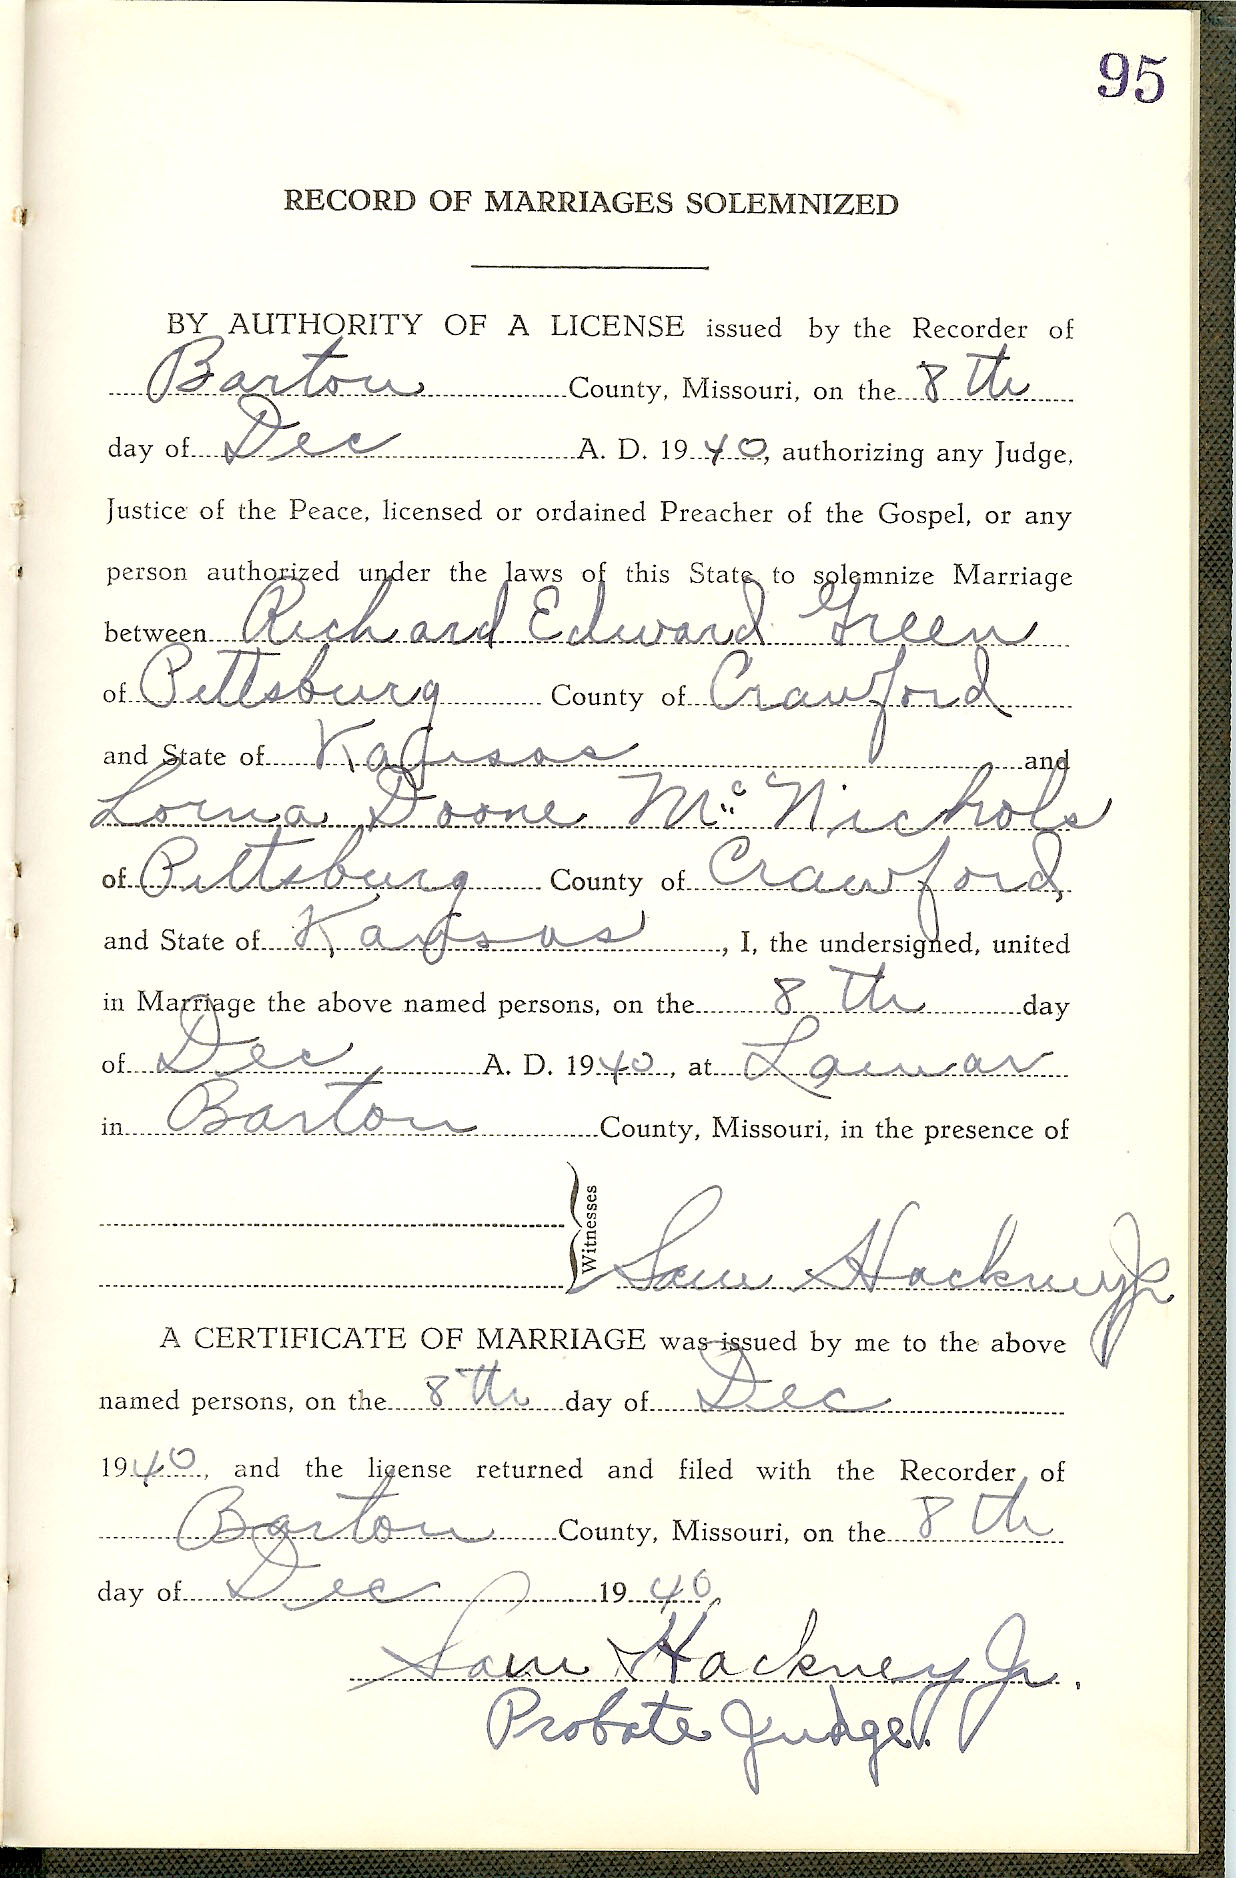 95
RECORD OF MARRIAGES SOLEMNIZED
BY AUTHORITY OF A LICENSE issued by the Recorder of
Barton County, Missouri, on the 8th
day of Dec A. D. 1940, authorizing any Judge,
Justice of the Peace, licensed or ordained Preacher of the Gospel, or any
person authorized under the laws of this State to solemnize Marriage
between Richard Edward Green
of Pittsburg County of Crawford
and State of Kansas and
Lorna Doone McNichols
of Pittsburg County of Crawford
and State of Kansas, I, the undersigned, united
in Marriage the above named persons, on the 8th day
of Dec A. D. 1940, at Lamar
in Barton County, Missouri, in the presence of
Witnesses
Sam Hackney Jr
A CERTIFICATE OF MARRIAGE was issued by me to the above
named persons, on the 8th day of Dec
1940, and the license returned and filed with the Recorder of
Barton County, Missouri, on the 8th
day of Dec 1940
Sam Hackney Jr.
Probate Judge.